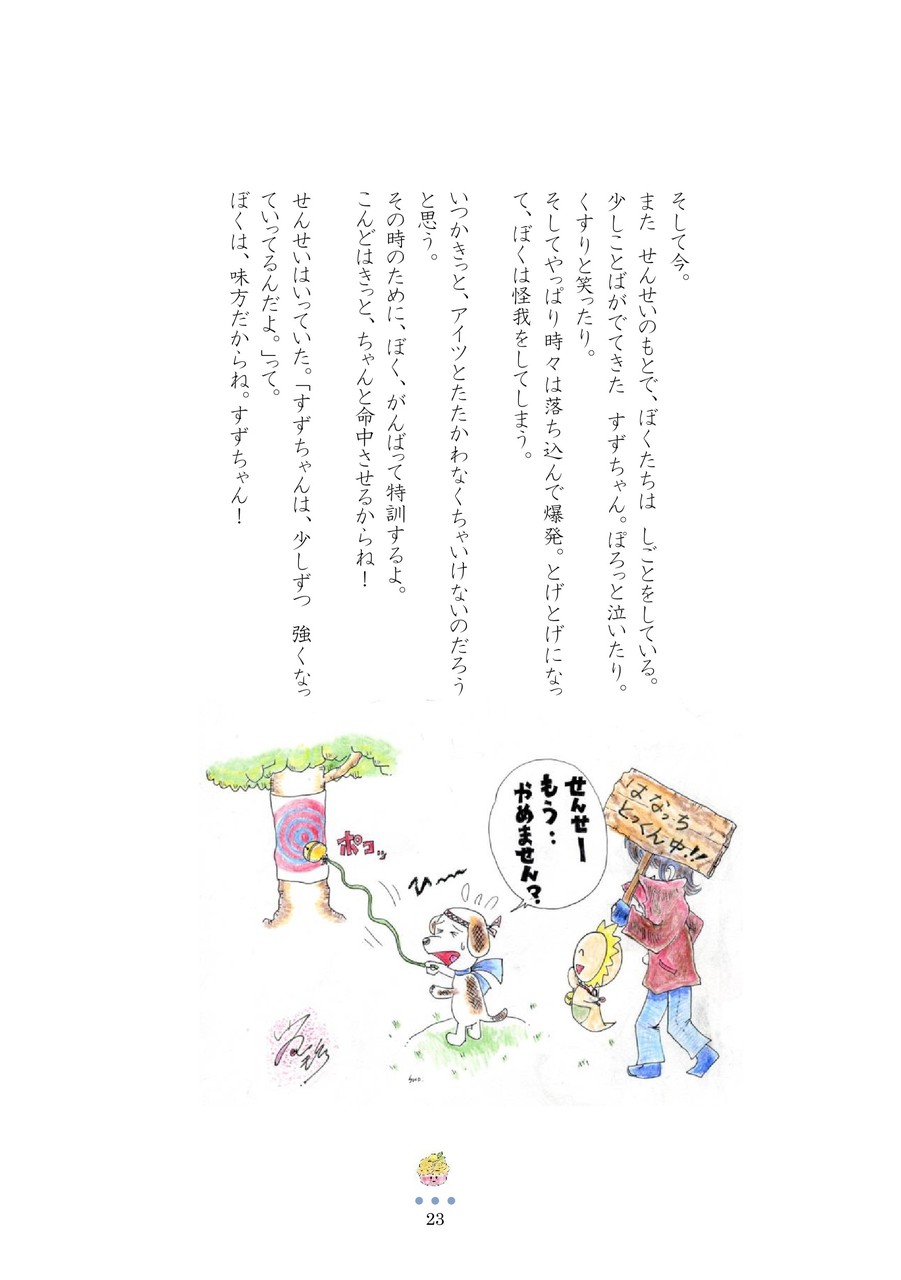 そして今。
また　せんせいのもとで、ぼくたちは　しごとをしている。
少しことばがでてきた　すずちゃん。ぽろっと泣いたり。
くすりと笑ったり。
そしてやっぱり時々は落ち込んで爆発。とげとげになっ
て、ぼくは怪我をしてしまう。
いつかきっと、アイツとたたかわなくちゃいけないのだろう
と思う。
その時のために、ぼく、がんばって特訓するよ。
こんどはきっと、ちゃんと命中させるからね！
せんせいはいっていた。「すずちゃんは、少しずつ　強くなっ
ていってるんだよ。」って。
ぼくは、味方だからね。すずちゃん！
はなっち
とっくん中!!
せんせー
もう‥
やめません?
ひ〜〜
ポコッ
23